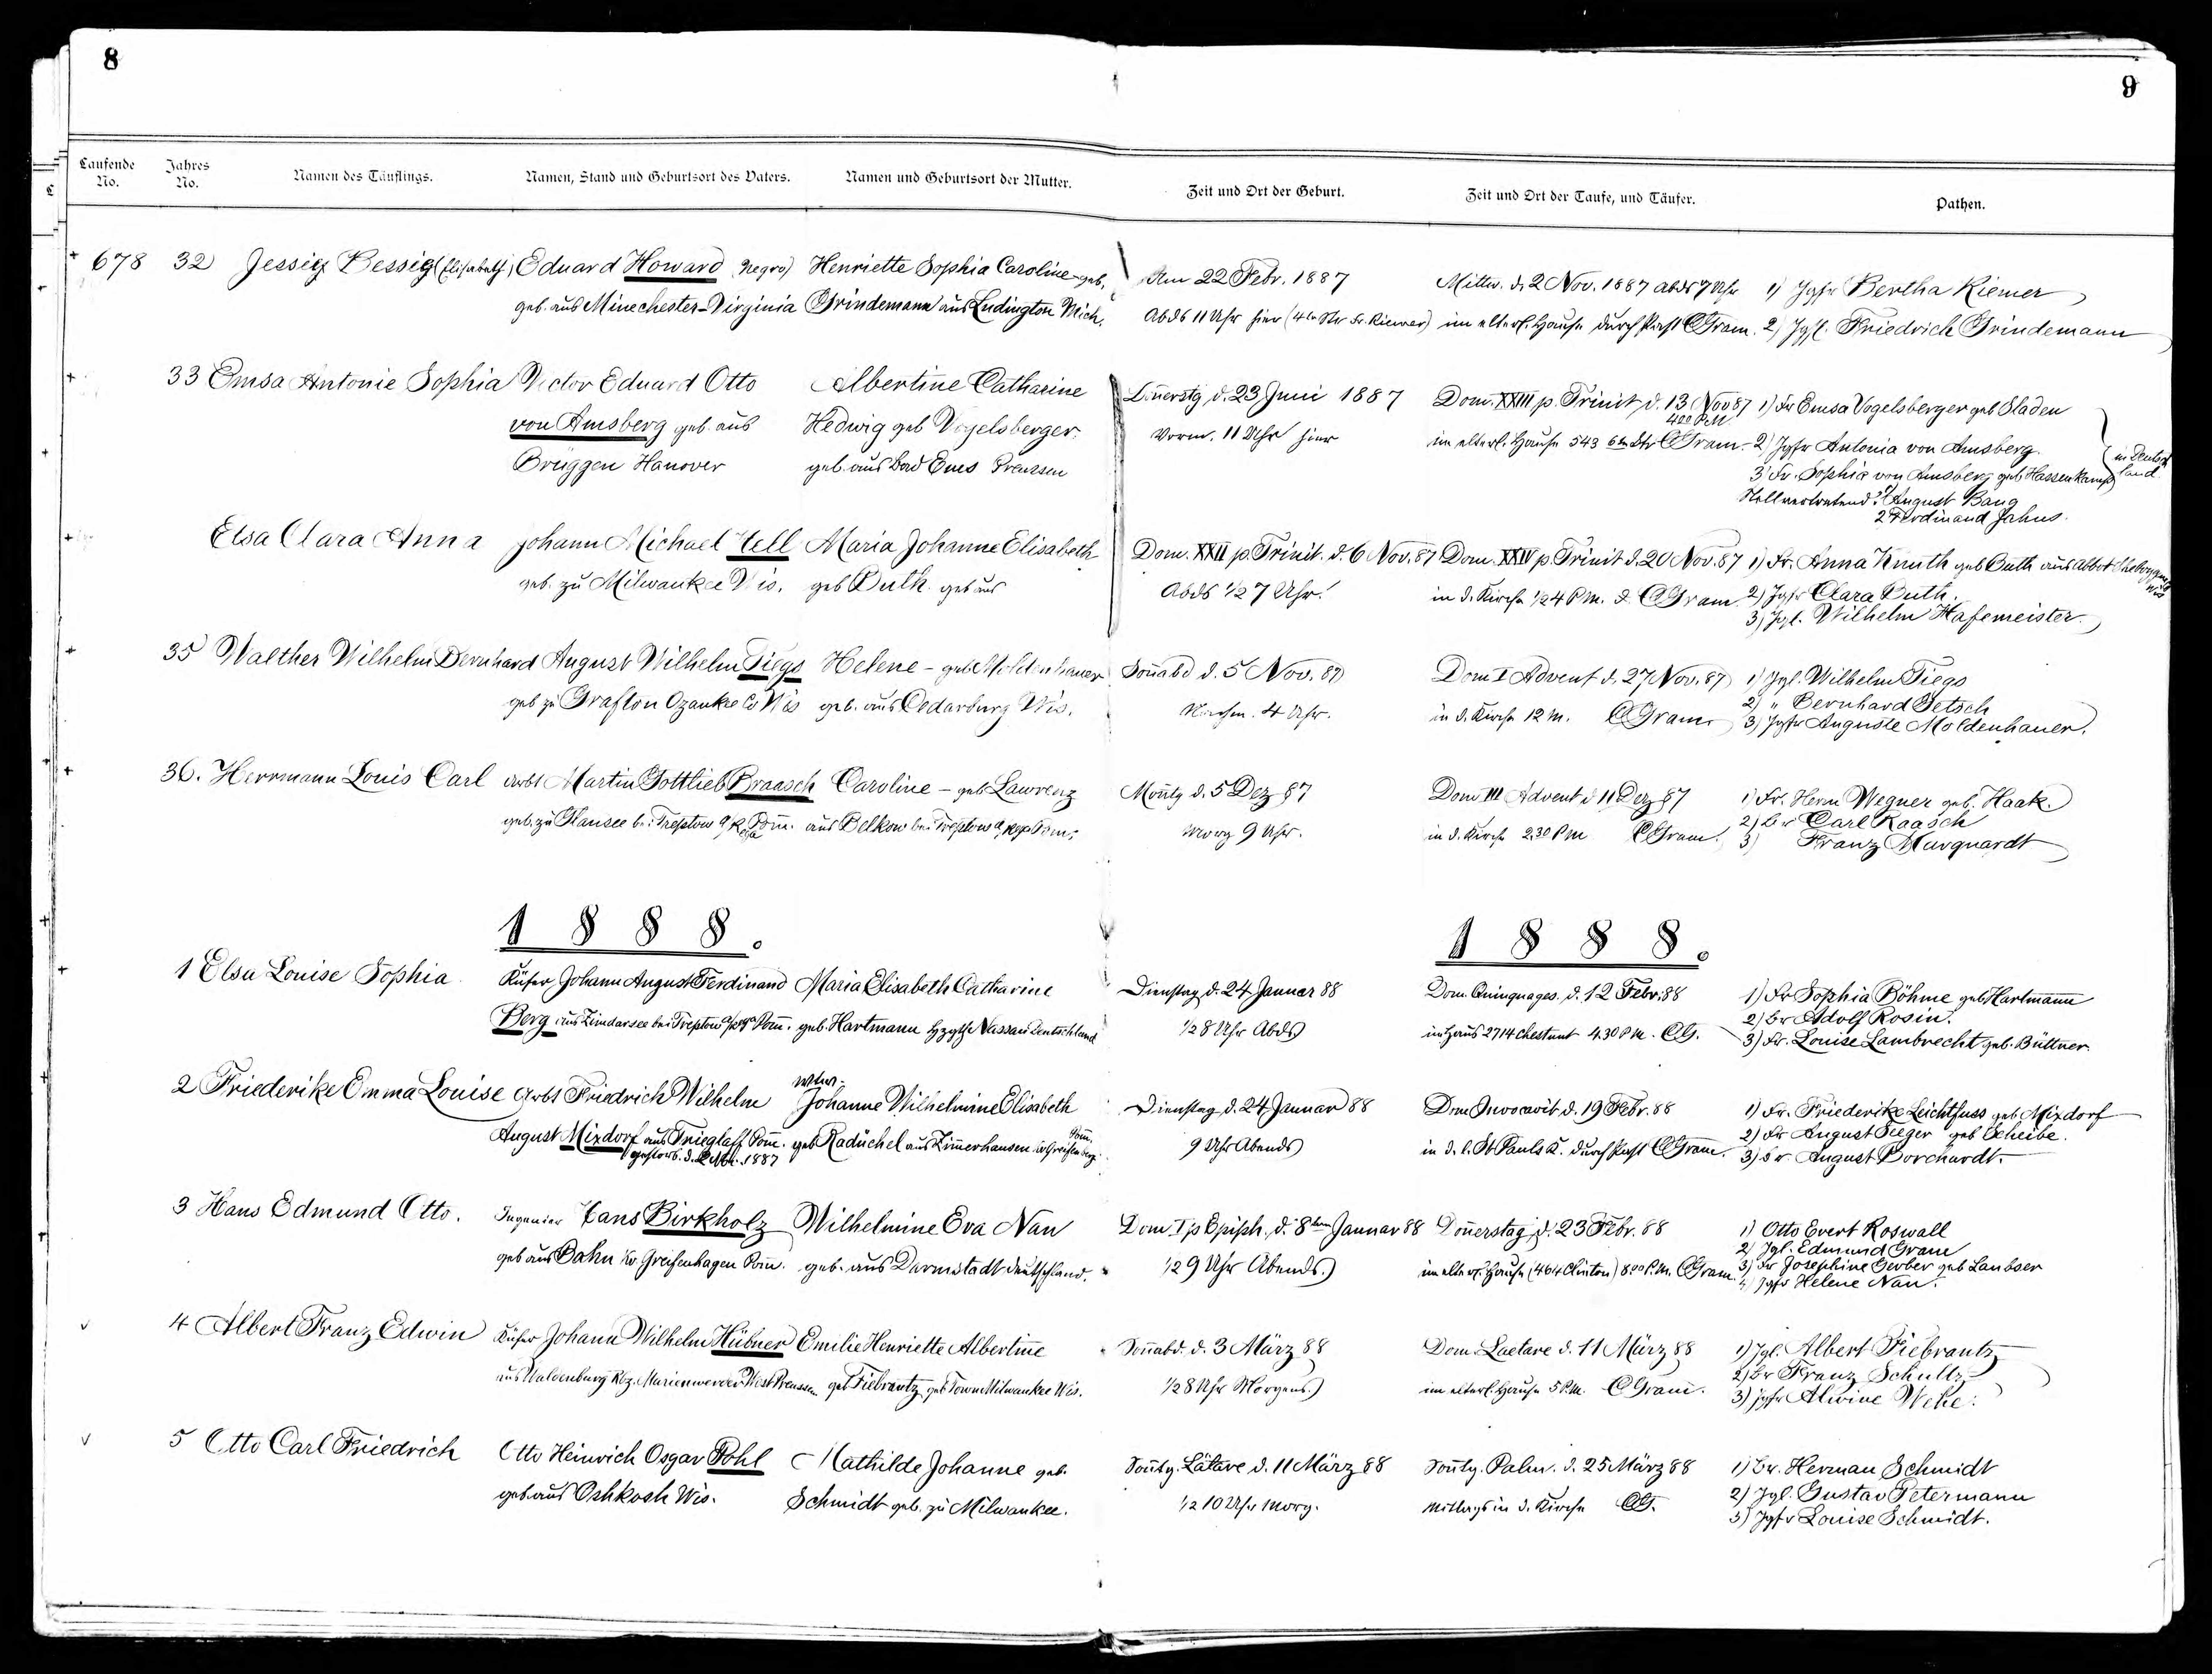 8
9
Laufende No.
Jahres No.
Namen des Täuflings.
Namen, Stand und Geburtsort des Vaters.
Namen und Geburtsort der Mutter.
Zeit und Ort der Geburt.
Zeit und Ort der Taufe, und Täufer.
Pathen.
678 32 Jessie Bessie (Elisabeth)
Eduard Howard Negro)
geb. aus Minechester-Virginia
Henriette Sophia Caroline geb.
Grindemann aus Ludington Mich.
Am 22 Febr. 1887
Abds 11 Uhr hier
Mittw. d. 2 Nov. 1887 abds 7 Uhr
im elterl. Hause durch Past CGram.
1) Jgfr Bertha Kiemer
2) Jgl. Friedrich Grindemann
33 Emsa Antonie Sophia
Victor Eduard Otto
von Amsberg geb. aus
Brüggen Hanover
Albertine Catharine
Hedwig geb Vogelsberger.
geb. aus Bad Ems Preussen
Donnerstg d. 23 Juni 1887
Vorm. 11 Uhr hier
Dom. XXIII p. Trinit. d. 13 Nov 87
4.00 P.M.
im elterl. Hause 543 6te Str CGram.
1) Fr Emsa Vogelsberger geb Sladen
2) Jgfr Antonia von Amsberg.
3) Fr. Sophia von Amsberg geb Hassenkamp
in Deutschland
Stellvertretend: 1) August Bang
2 Ferdinand Jahns.
Elsa Clara Anna
Johann Michael Tell
geb. zu Milwaukee Wis.
Maria Johanne Elisabeth
geb Buth. geb aus
Dom. XXII p. Trinit. d. 6 Nov. 87
Abds 1/2 7 Uhr.
Dom. XXIV p. Trinit d. 20 Nov. 87
in d. Kirche 1/2 4 P.M. d. CGram
1) Fr. Anna Knuth geb Buth aus Abbot Sheboygan Co Wis
2) Jgfr Clara Buth.
3) Jgl. Wilhelm Hafemeister.
35 Walther Wilhelm Bernhard
August Wilhelm Tiegs
geb zu Grafton Ozaukee Co Wis
Helene - geb. Moldenhauer
geb. aus Cedarburg Wis.
Sonnabd d. 5 Nov. 87
Nachm. 4 Uhr.
Dom I Advent d. 27 Nov. 87
in d. Kirche 12 M. CGram.
1) Jgl. Wilhelm Tiegs
2) " Bernhard Jetsch
3) Jgfr Auguste Moldenhauer.
36. Herrmann Louis Carl
Arbt Martin Gottlieb Braasch
geb. zu Glansee bei Treptow a/Rega Pom.
Caroline - geb Lawrenz
aus Belkow bei Treptow a/Rega Pom.
Montg d. 5 Dez 87
Morg 9 Uhr.
Dom III Advent d 11 Dez 87
in d. Kirche 2.30 P.M. CGram.
1) Fr. Herm Wegner geb. Haak.
2) Hr Carl Raasch
3) Franz Marquardt
1 8 8 8.
1 8 8 8.
1 Elsa Louise Sophia
Küfer Johann August Ferdinand
Berg aus Zimdarsee bei Treptow a/Rega Pom.
Maria Elisabeth Catharine
geb. Hartmann Nassau Deutschland
Dienstag d. 24 Januar 88
1/2 8 Uhr Abds
Dom. Quinquages. d. 12 Febr. 88
im Haus 2714 Chestnut 4.30 P.M. CG.
1) Fr Sophia Böhme geb Hartmann
2) Hr Adolf Rosin.
3) Fr. Louise Lambrecht geb. Büttner.
2 Friederike Emma Louise
Arbt Friedrich Wilhelm
August Mixdorf aus Trieglaff Pom.
gestorb. d. 1887
Wtw.
Johanne Wilhelmine Elisabeth
geb Radüchel aus Zimmerhausen Kr. Greifenberg Pom.
Dienstag d. 24 Januar 88
9 Uhr Abends
Dom Invocavit d. 19 Febr. 88
in d. l. St Pauls K. durch Past CGram.
1) Fr. Friederike Leichtfuss geb Mixdorf
2) Fr August Seeger geb Scheibe.
3) Hr. August Borchardt.
3 Hans Edmund Otto.
Ingenier Hans Birkholz
geb aus Bahn Kr Greifenhagen Pom.
Wilhelmine Eva Nau
geb. aus Darmstadt Deutschland.
Dom I p Epiph. d. 8ten Januar 88
1/2 9 Uhr Abends.
Donnerstag d. 23 Febr. 88
im elterl. Hause (464 Clinton) 8.00 P.M. CGram.
1) Otto Evert Roswall
2) Jgl. Edmund Gram
3) Fr Josephine Gerber geb Laubser
4) Jgfr Helene Nau.
4 Albert Franz Edwin
Küfer Johann Wilhelm Hübner
aus Waldenburg Rbz. Marienwerder West Preussen
Emilie Henriette Albertine
geb Fiebrantz geb Town Milwaukee Wis.
Sonnabd. d. 3 März 88
1/2 8 Uhr Morgens.
Dom. Laetare d. 11 März 88
im elterl. Hause 5 P.M. CGram.
1) Jgl. Albert Fiebrantz
2) Hr Franz Schultz
3) jgfr Alwine Weke.
5 Otto Carl Friedrich
Otto Heinrich Osgar Pohl
geb. aus Oshkosh Wis.
Mathilde Johanne geb.
Schmidt geb. zu Milwaukee.
Sontg. Lätare d. 11 März 88
1/2 10 Uhr Morg.
Sontg. Palm. d. 25 März 88
Mittags in d. Kirche CG.
1) Hr. Herman Schmidt
2) Jgl. Gustav Petermann
3) Jgfr Louise Schmidt.